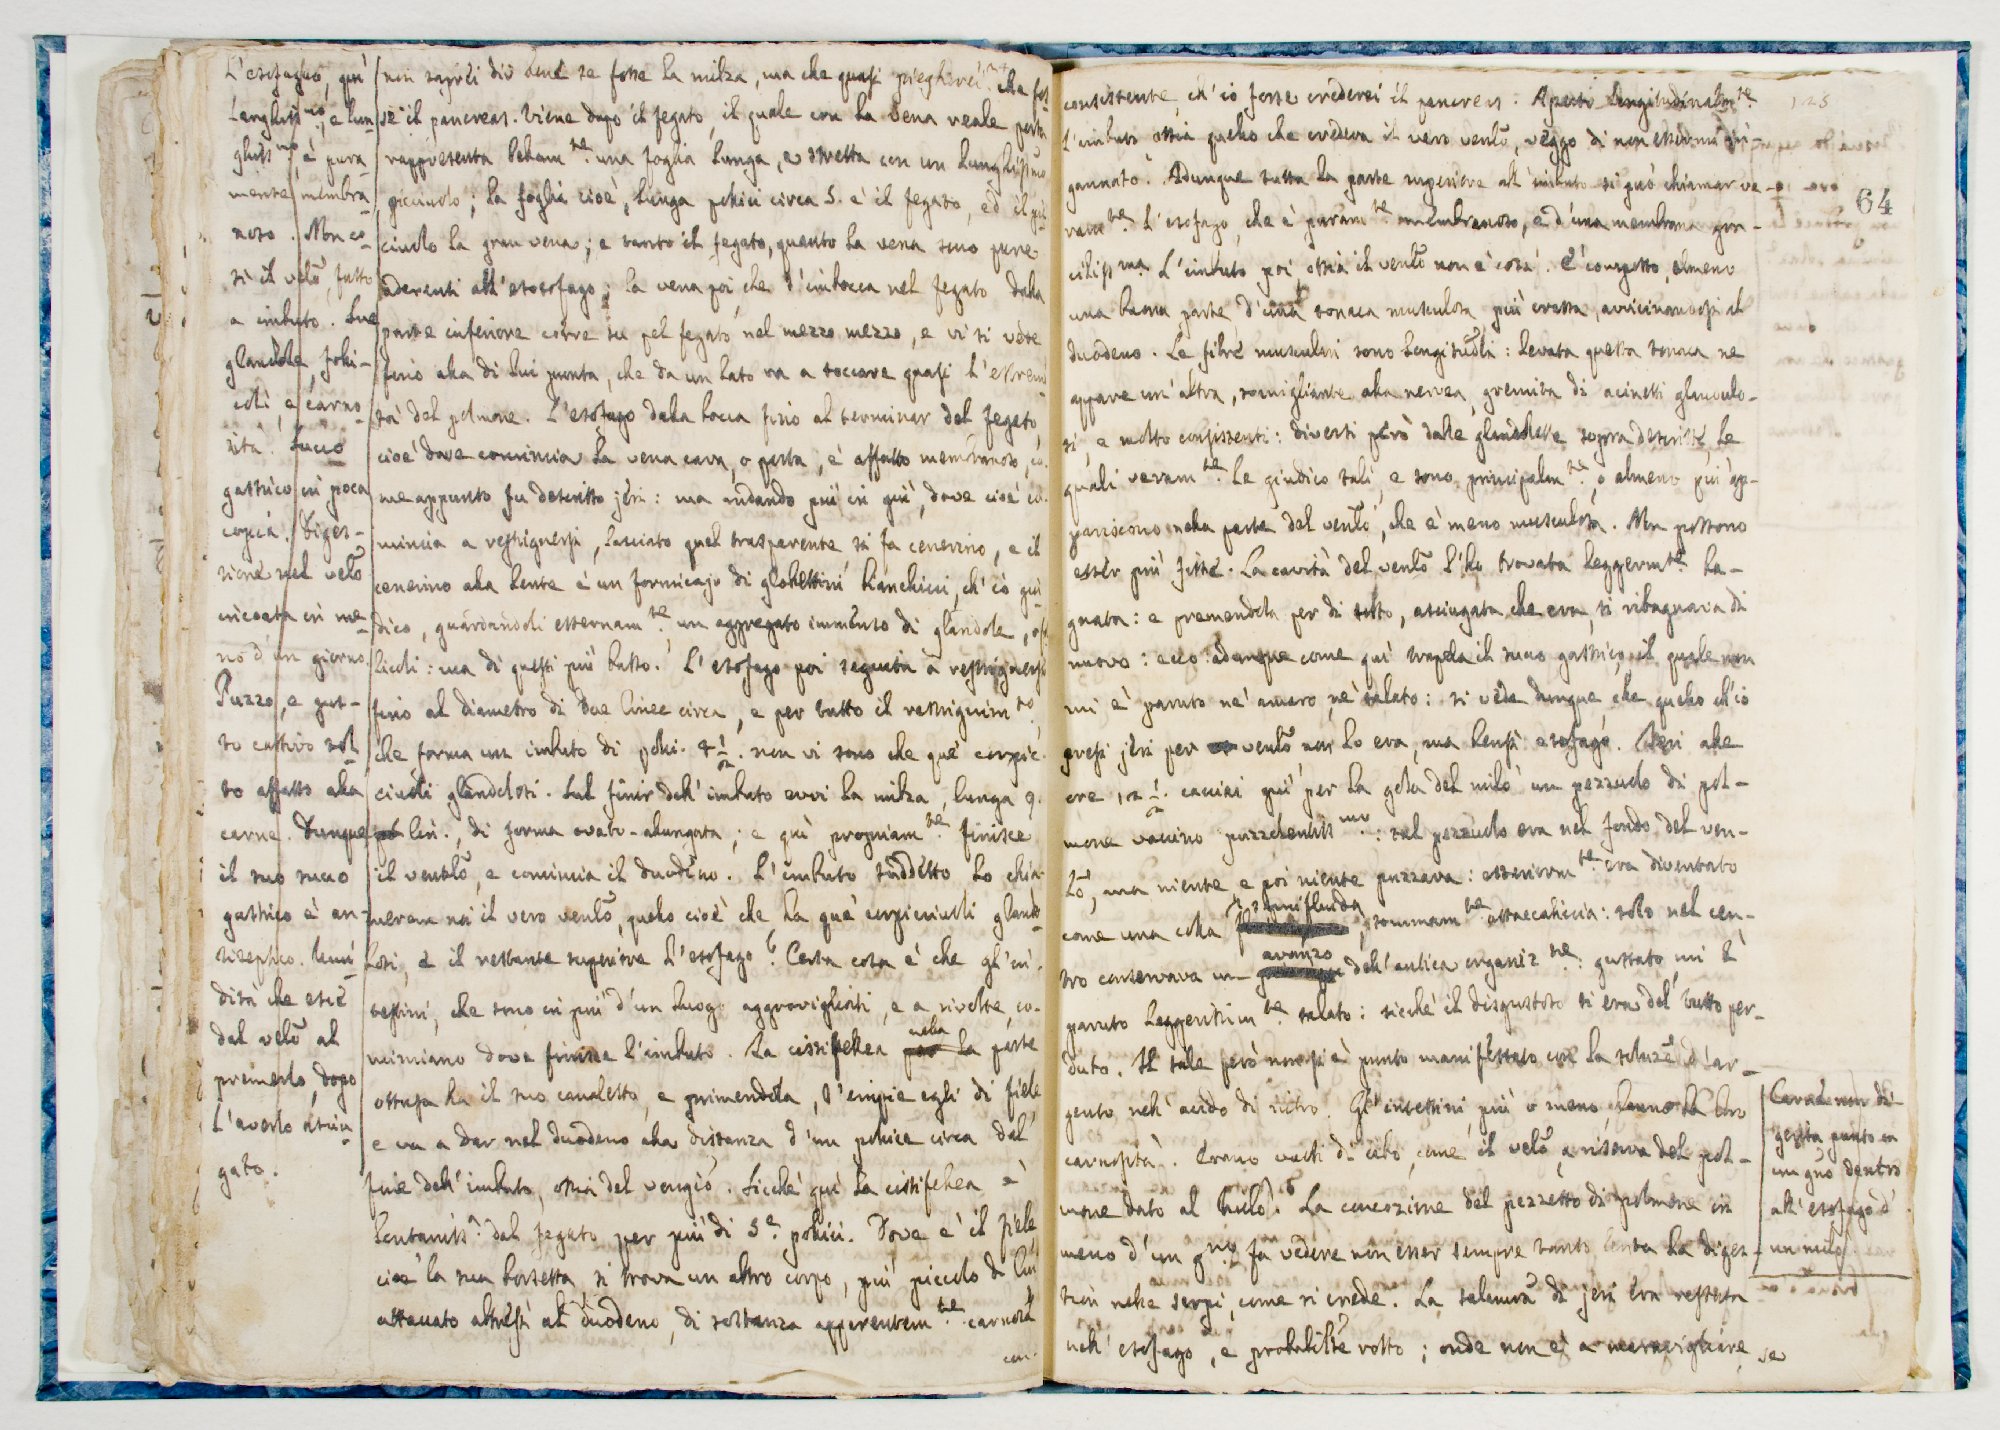 L'esofago, qui
lunghiss.mo, e lun-
ghiss.mo, è pura
mente membra
noso. Ma co-
sì il velo, fatto
a imbuto. Sue
glandole, foli-
coli, e carno
sità. Succo
gastrico in poca
copia. Diges-
sione nel velo
incoata in me-
no d'un giorno.
Puzzo, e gus-
to cattivo tol
to affatto alla
carne. Dunque
il suo succo
gastrico è an-
tiseptico. Umi
dità che esce
dal velo al
premerlo, dopo
l'averlo asciu-
gato.
non saprei dir bene se fosse la milza, ma che quasi piegherei che fos-
se il pancreas. Viene dopo il fegato, il quale con la vena
rappresenta bellam.te una foglia lunga, e stretta con un lunghissimo
picciuolo; la foglia cioè, lunga pollici circa 5. è il fegato, ed il pic
ciuolo la gran vena; e tanto il fegato, quanto la vena sono pure
aderenti all'esofago; la vena poi che s'imbocca nel fegato dalla
parte inferiore corre su pel fegato nel mezzo mezzo, e vi si vede
fino alla di lui punta, che da un lato va a toccare quasi l'estremi
tà del polmone. L'esofago dalla bocca fino al terminar del fegato,
cioè dove comincia la vena cava, o porta, è affatto membranoso, co
me appunto fu descritto jeri: ma andando più in giù, dove cioè co-
mincia a restrignersi, lasciato quel trasparente si fa cenerino, e il
cenerino alla lente è un formicajo di globettini bianchicci, ch'io giu
dico, guardandoli esternam.te un aggregato immenso di glandole, o fol
licoli: ma di questi più basso. L'esofago poi seguita a restrignersi
fino al diametro di due linee circa, e per tutto il restrignim.to,
che forma un imbuto di poll. 4 1/2. non vi sono che que' corpic
ciuoli glandolosi. Sul finir dell'imbuto evvi la milza, lunga 9.
lin., di forma ovato-alungata; e qui propriam.te finisce
il ventlo, e comincia il duodeno. L'imbuto suddetto lo chia
meremo noi il vero ventlo, quello cioè che ha que' corpicciuoli glando
losi, e il restante superiore l'esofago? Certa cosa è che gl'in-
testini, che sono in più d'un luogo aggrovigliati, e a rivolte, co-
minciano dove finisce l'imbuto. La cistifellea nella la parte
ottusa ha il suo canaletto, e primendola, s'empie egli di fiele
e va a dar nel duodeno alla distanza d'un pollice circa dal
fine dell'imbuto, ossia del. Sicchè qui la cistifellea è
lontaniss.a dal fegato per più di 5.e pollici. Dove è il fiele,
cioè la sua borsetta, si trova un altro corpo, più piccolo di lui
attaccato altresì al duodeno, di sostanza apparentem.te carnosa
con-
64
consistente, ch'io forse crederei il pancreas. Aperto longitudinalm.te
l'imbuto ossia quello che credeva il vero ventlo, veggo di non essermi in-
gannato. Adunque tutta la parte superiore all'imbuto si può chiamar ve-
ram.te l'esofago, che è puram.te membranoso, e d'una membrana gra-
cilissma. L'imbuto poi, ossia il ventlo non è così. È composto, almeno
una buona parte, d'una tonaca musculosa più crassa, avvicinandosi al
duodeno. Le fibre musculari sono longitudli: levata questa tonaca ne
appare un'altra, somigliante alla nervea, gremita di acinetti glandulo-
si, e molto consistenti: diversi però dalle glandolette sopra descritte, le
quali veram.te le giudico tali, e sono principalm.te, o almeno più ap-
pariscono nella parte del ventlo, che è meno musculosa. Ma possono
esser più fitte. La cavità del ventlo l'ho trovata leggerm.te ba-
gnata: e premendola per di sotto, asciugata che era, si ribagnava di
nuovo: ecco adunque come qui trapela il succo gastrico, il quale non
mi è paruto nè amaro, nè salato: si vede dunque, che quello ch'io
presi jeri per ventlo non lo era, ma bensì esofago. Jeri alle
ore 12 1/2. cacciai giù per la gola del milò un pezzuolo di pol-
mone vaccino puzzolentiss.mo: tal pezzuolo era nel fondo del ven-
lo, ma niente, e poi niente puzzava: esteriorm.te era diventato
come una colla semifluida, sommam.te attaccaticcia: solo nel cen-
tro conservava un avanzo dell'antica organiz.ne: gustato, mi è
paruto leggerissim.te salato: sicchè il disgustoso si era del tutto per-
duto. Il sale però non si è punto manifestato con la soluze d'ar-
gento nell'acido di nitro. Gl'intestini, più o meno, hanno la loro
carnosità. Erano vuoti di cibo, come il velo, a riserva del pol-
mone dato al milò. La concozione del pezzetto di polmone in
meno d'un g.no fa vedere non esser sempre tanto lenta la diges-
tion nelle serpi, come si crede. La salamra di jeri era restata
nell'esofago, e probabilte rotto; onde non è a maravigliare se
Carne non di-
gerita punto in
un gno dentro
all'esofago d'
un milò.